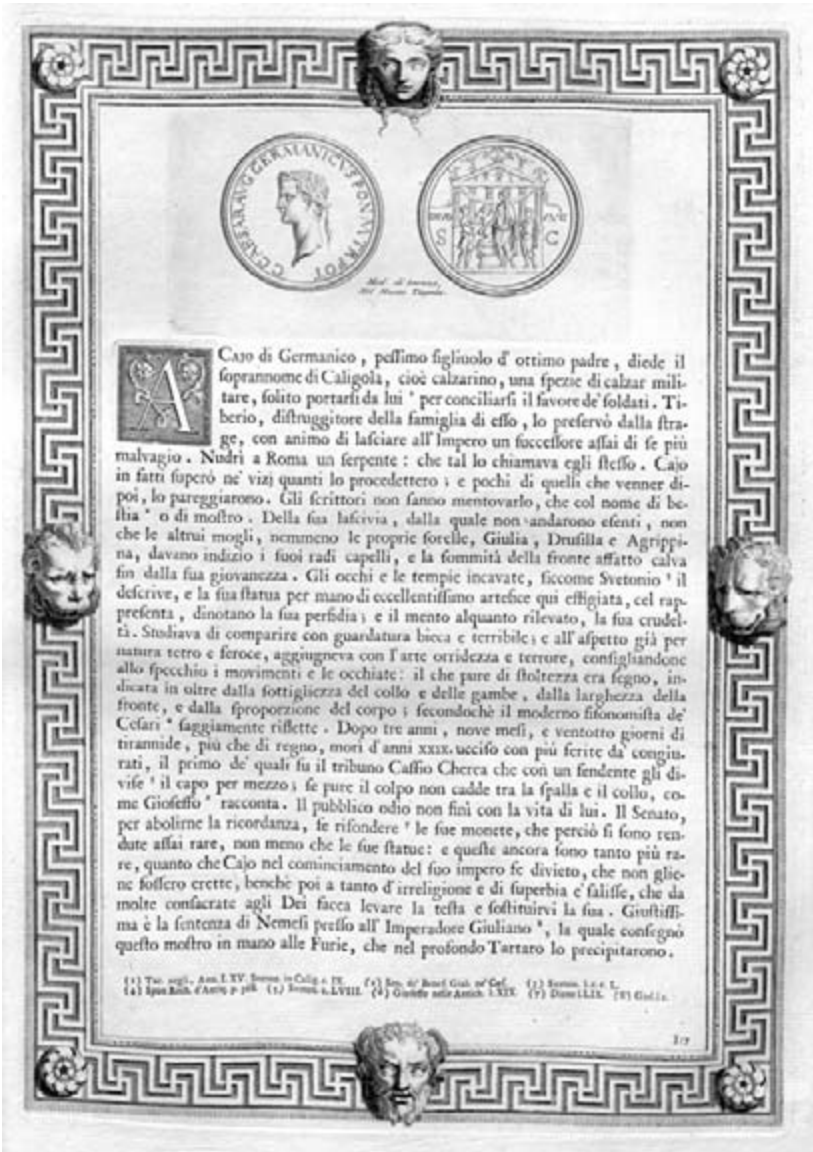 C CAESAR AVG GERMANICVS PON M TR POT
S C
Med. di bronzo,
Nel Museo Tiepolo.
A CAJO di Germanico, peſſimo figliuolo d' ottimo padre, diede il
ſoprannome di Caligola, cioè calzarino, una ſpezie di calzar mili-
tare, ſolito portarſi da lui ¹ per conciliarſi il favore de' ſoldati. Ti-
berio, diſtruggitore della famiglia di eſſo, lo preſervò dalla ſtra-
ge, con animo di laſciare all' Impero un ſucceſſore aſſai di ſe più
malvagio. Nudrì a Roma un ſerpente: che tal lo chiamava egli ſteſſo. Cajo
in fatti ſuperò ne' vizj quanti lo procedettero; e pochi di quelli che venner di-
poi, lo pareggiarono. Gli ſcrittori non ſanno mentovarlo, che col nome di be-
ſtia ² o di moſtro. Della ſua laſcivia, dalla quale non andarono eſenti, non
che le altrui mogli, nemmeno le proprie ſorelle, Giulia, Druſilla e Agrippi-
na, davano indizio i ſuoi radi capelli, e la ſommità della fronte affatto calva
fin dalla ſua giovanezza. Gli occhi e le tempie incavate, ſiccome Svetonio ³ il
deſcrive, e la ſua ſtatua per mano di eccellentiſſimo artefice qui effigiata, cel rap-
preſenta, dinotano la ſua perfidia; e il mento alquanto rilevato, la ſua crudel-
tà. Studiava di comparire con guardatura bieca e terribile; e all' aſpetto già per
natura tetro e feroce, aggiugneva con l' arte orridezza e terrore, conſigliandone
allo ſpecchio i movimenti e le occhiate: il che pure di ſtoltezza era ſegno, in-
dicata in oltre dalla ſottigliezza del collo e delle gambe, dalla larghezza della
fronte, e dalla ſproporzione del corpo; ſecondochè il moderno fiſonomiſta de'
Ceſari ⁴ ſaggiamente riflette. Dopo tre anni, nove meſi, e ventotto giorni di
tirannide, più che di regno, morì d' anni XXIX. ucciſo con più ferite da' congiu-
rati, il primo de' quali fu il tribuno Caſſio Cherea che con un fendente gli di-
viſe ⁵ il capo per mezzo; ſe pure il colpo non cadde tra la ſpalla e il collo, co-
me Gioſeffo ⁶ racconta. Il pubblico odio non finì con la vita di lui. Il Senato,
per abolirne la ricordanza, fe rifondere ⁷ le ſue monete, che perciò ſi ſono ren-
dute aſſai rare, non meno che le ſue ſtatue: e queſte ancora ſono tanto più ra-
re, quanto che Cajo nel cominciamento del ſuo impero fe divieto, che non glie-
ne foſſero erette, benchè poi a tanto d' irreligione e di ſuperbia e' ſaliſſe, che da
molte conſacrate agli Dei facea levare la teſta e ſoſtituirvi la ſua. Giuſtiſſi-
ma è la ſentenza di Nemeſi preſſo all' Imperadore Giuliano ⁸, la quale conſegnò
queſto moſtro in mano alle Furie, che nel profondo Tartaro lo precipitarono.
(1) Tac. negli Ann. l. XV. Sveton. in Calig. c. IX. (2) Sen. de' Benef. Giul. ne' Ceſ. (3) Sveton. l. c. c. L.
(4) (5) Sveton. c. LVIII. (6) Gioſeffo nelle Antich. l. XIX. (7) Dione l. LIX. (8) Giul. l. c.